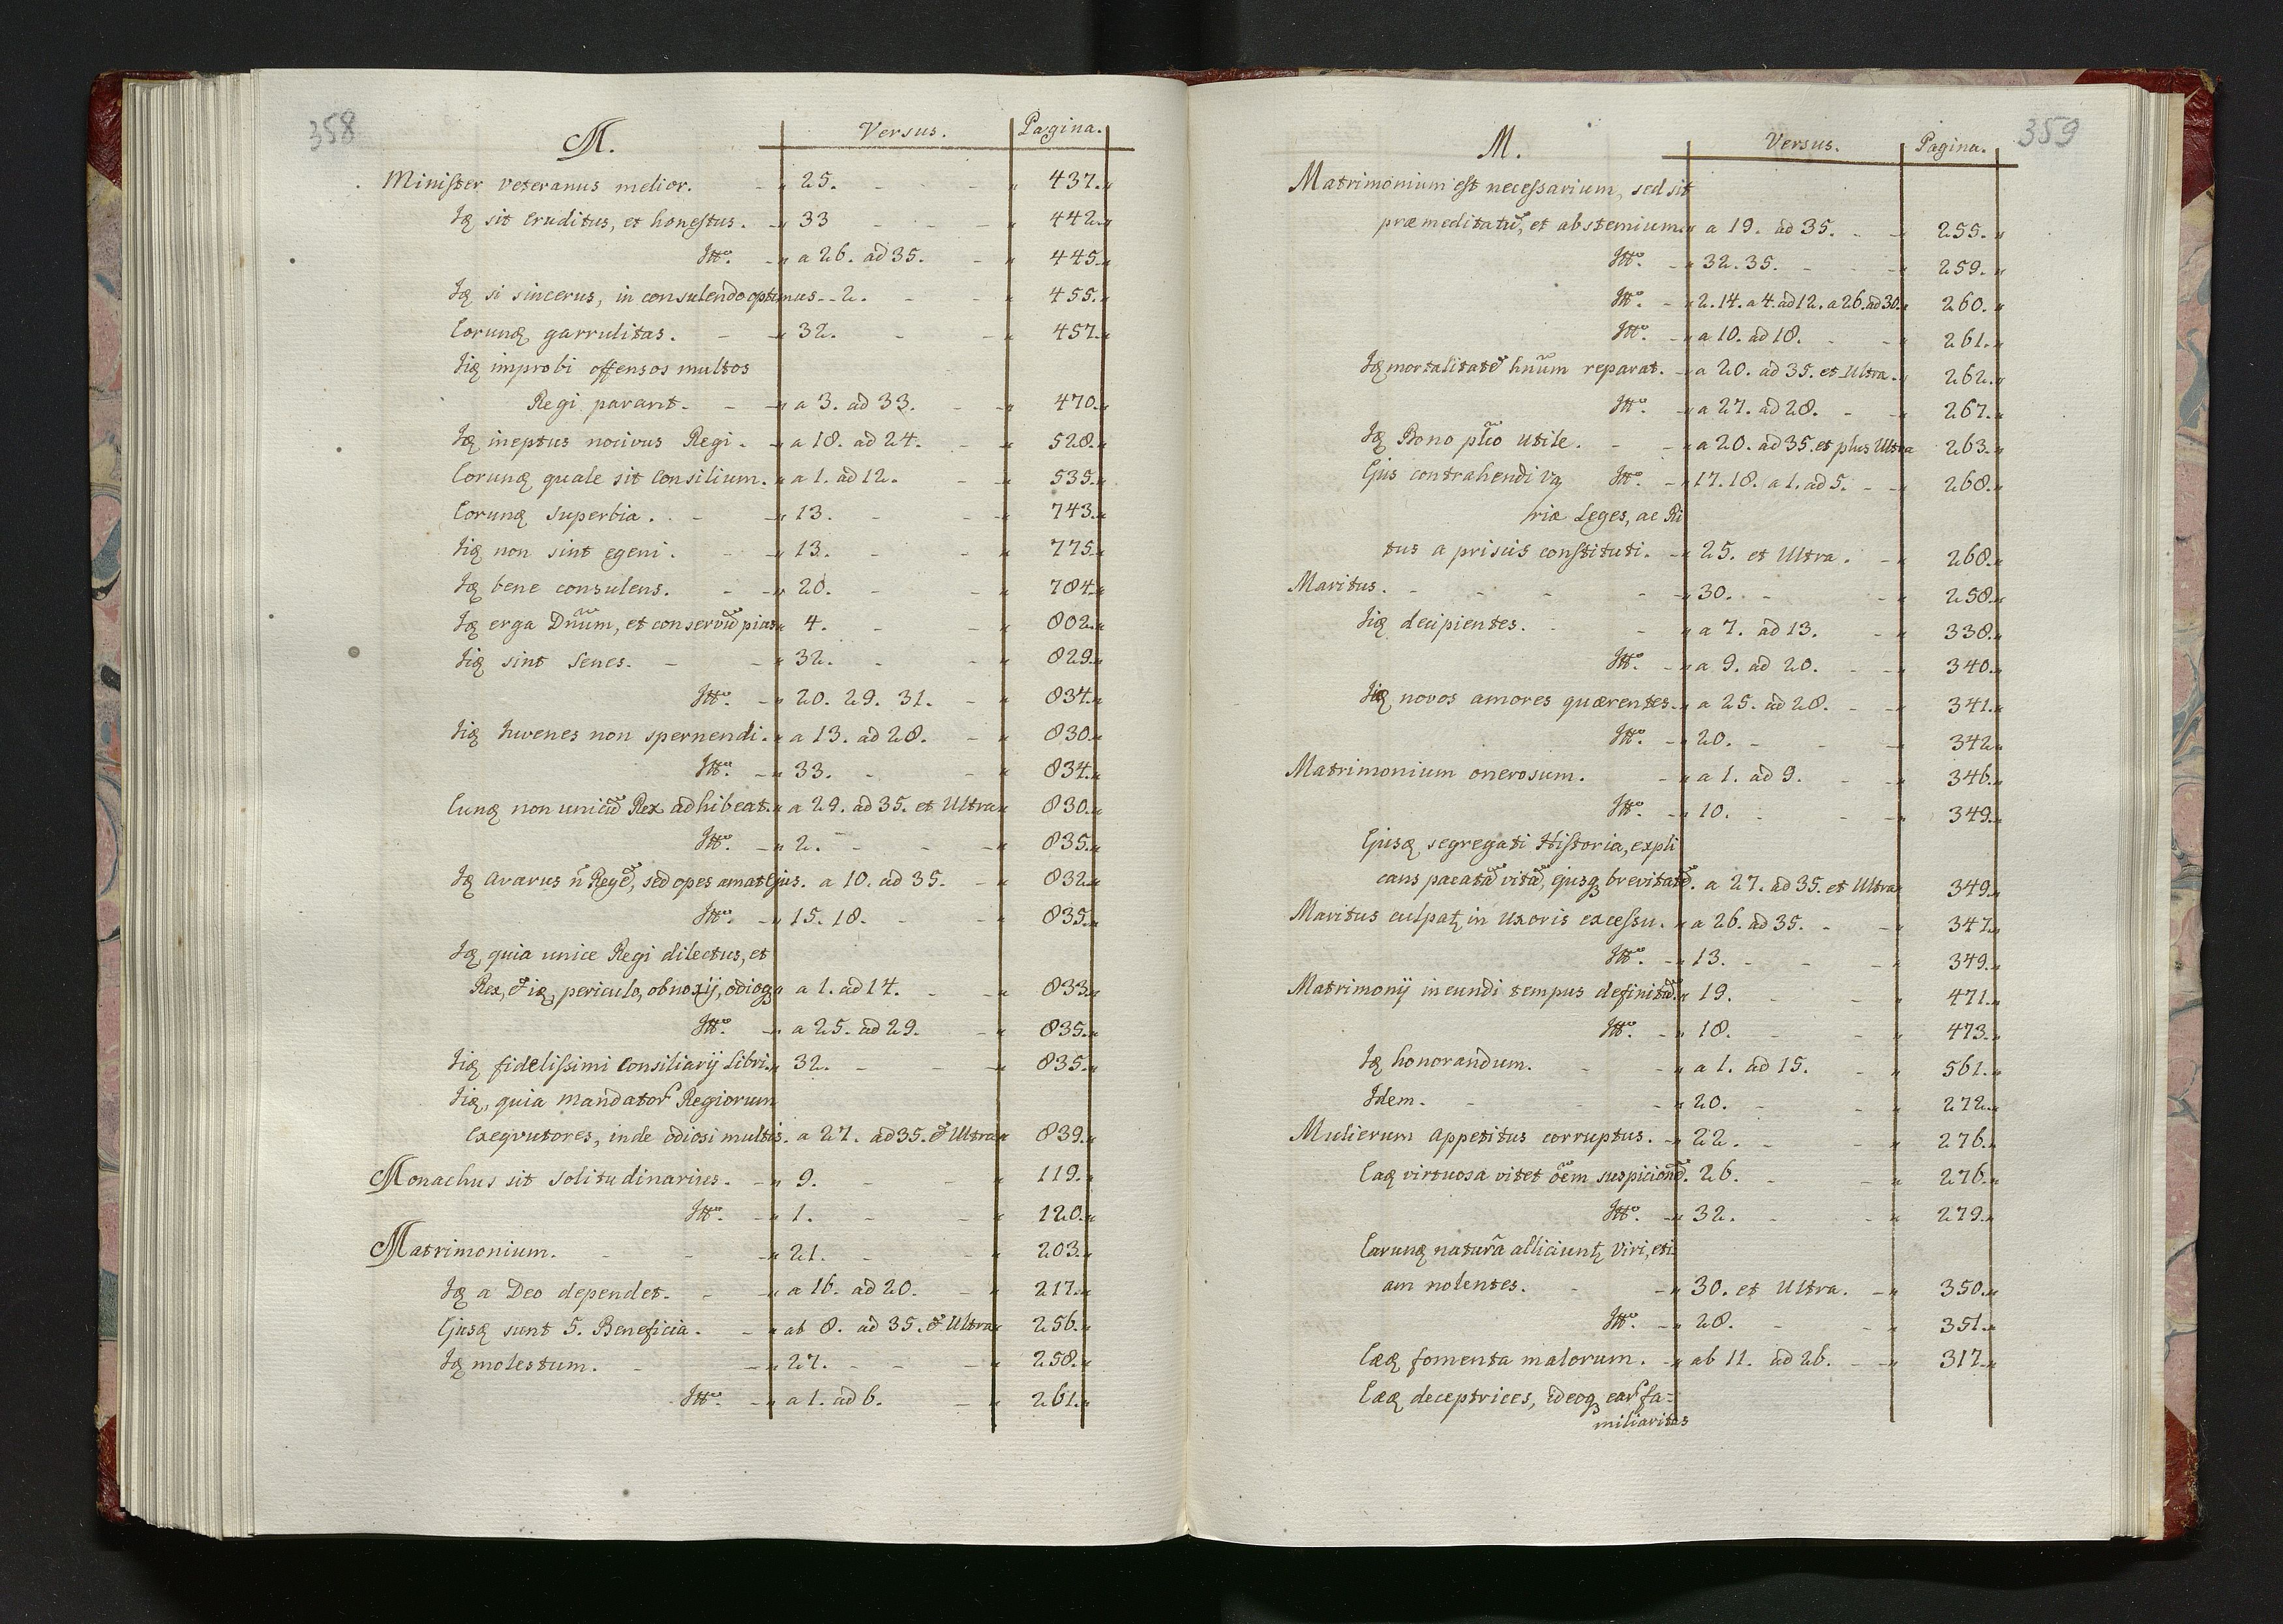 358
M. Versus. Pagina.
Miniſter veteranus melior. 25. 437.
Iꝗ sit Eruditus, et honeſtus. 33 442.
Itt͠o. a 26. ad 35. 445.
Iꝗ si sincerus, in consulendo optimus 2. 455.
Eorunꝗ garrulitas. 32. 457.
Iiꝗ improbi offensos multos
Regi parant. a 3. ad 33. 470.
Iꝗ ineptus nocivus Regi. a 18. ad 24. 528.
Eorunꝗ quale sit Consilium. a 1. ad 12. 535.
Eorunꝗ superbia. 13. 743.
Iiꝗ non sint egeni. 13. 775.
Iꝗ bene consulens. 20. 784.
Iꝗ erga Dn͠um, et conservũ pius 4. 802.
Iiꝗ sint Senes. 32. 829.
Itt͠o. 20. 29. 31. 834.
Iiꝗ Iuvenes non spernendi. a 13. ad 28. 830.
Itt͠o. 33. 834.
Eunꝗ non unicũ Rex adhibeat. a 29. ad 35. et Ultra 830.
Itt͠o. 2. 835.
Iꝗ avarus n̄ Regẽ, sed opes amat Ejus. a 10. ad 35. 832.
Itt͠o. 15. 18. 835.
Iꝗ, quia unice Regi dilectus, et
Rex, & iꝗ, periculo, obnoxij, odioꝗ a 1. ad 14. 833.
Itt͠o. a 25. ad 29. 835.
Iiꝗ fideliſsimi Consiliarij Libri. 32. 835.
Iiꝗ, quia mandatoꝝ Regiorum
Exeqvutores, inde odiosi multis. a 27. ad 35. & Ultra 839.
Monachus sit solitudinarius. 9. 119.
Itt͠o. 1. 120.
Matrimonium. 21. 203.
Iꝗ a Deo dependet. a 16. ad 20. 217.
Ejusꝗ sunt 5. Beneficia. ab 8. ad 35. & Ultra 256.
Iꝗ molestum. 27. 258.
Itt͠o. a 1. ad 6. 261.
359
M. Versus. Pagina.
Matrimonium eſt neceſsarium, sed sit
præmeditatũ, et abstemium. a 19. ad 35. 255.
Itt͠o. 32. 35. 259.
Itt͠o. 2. 14. a 4. ad 12. a 26. ad 30. 260.
Itt͠o. a 10. ad 18. 261.
Iꝗ mortalitatẽ hn͠um reparat. a 20. ad 35. et Ultra. 262.
Itt͠o. a 27. ad 28. 267.
Iꝗ Bono pl͠co utile. a 20. ad 35. et plus Ultra 263.
Ejus contrahendi va Itt͠o. 17. 18. a 1. ad 5. 268.
riæ Leges, ac Ri
tus a priscis conſtituti. 25. et Ultra. 268.
Maritus. 30. 258.
Iiꝗ decipientes. a 7. ad 13. 338.
Itt͠o. a 9. ad 20. 340.
Iiꝗ novos amores quærentes. a 25. ad 28. 341.
Itt͠o. 20. 342
Matrimonium onerosum. a 1. ad 9. 346.
Itt͠o. 10. 349.
Ejusꝗ segregati Hiſtoria, expli
cans pacatã vitã, ejusꝗ brevitatẽ. a 27. ad 35. et Ultra 349.
Maritus culpat in Uxoris exceſsu. a 26. ad 35. 347.
Itt͠o. 13. 349.
Matrimonij ineundi tempus definitũ. 19. 471.
Itt͠o. 18. 473.
Iꝗ honorandum. a 1. ad 15. 561.
Idem. 20. 272.
Mulierum appetitus corruptus. 22. 276.
Eaꝗ virtuosa vitet o͠em suspicionẽ. 26. 276.
Itt͠o. 32. 279.
Earunꝗ naturã alliciunt Viri, eti
am nolentes. 30. et Ultra. 350.
Itt͠o. 28. 351.
Eæꝗ fomenta malorum. ab 11. ad 26. 317.
Eæꝗ deceptrices, ideoꝗ earꝝ fa-
miliaritas